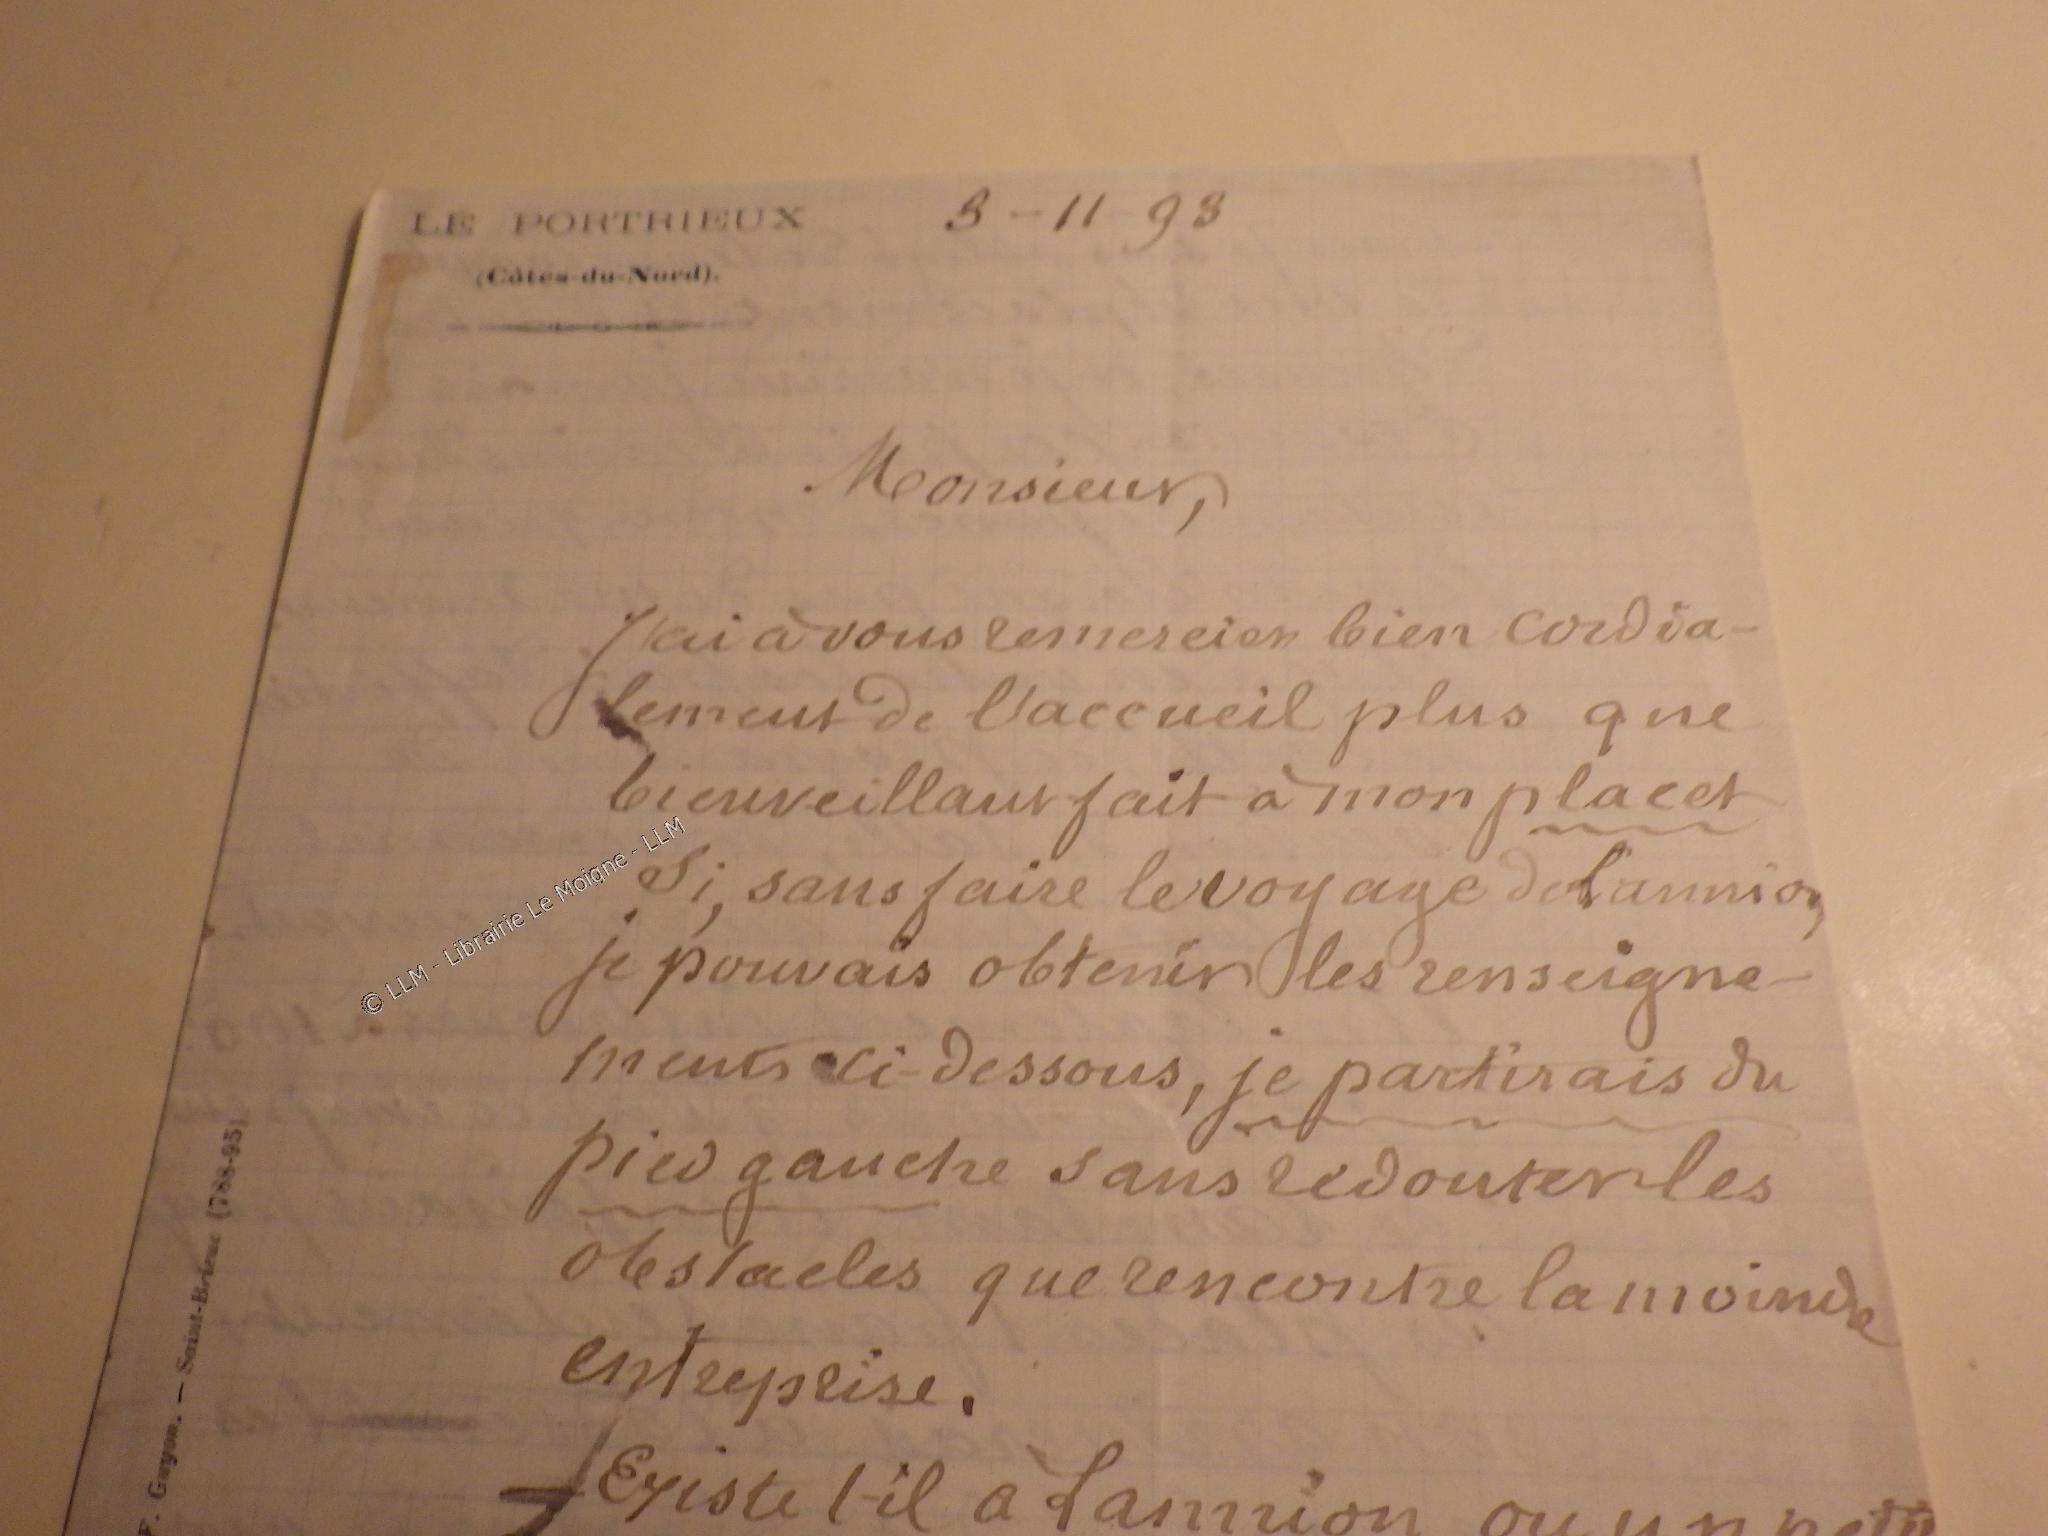 LE PORTRIEUX
(Côtes-du-Nord).
3-11-93
Monsieur,
J'ai à vous remercier bien cordia-
lement de l'accueil plus que
bienveillant fait à mon placet
Si, sans faire le voyage de Lannion,
je pouvais obtenir les renseigne-
ments ci-dessous, je partirais du
pied gauche sans redouter les
obstacles que rencontre la moindre
entreprise.
Existe t-il à Lannion ou un
F. Guyon. — Saint-Brieuc (788-93)
© LLM - Librairie Le Moigne - LLM